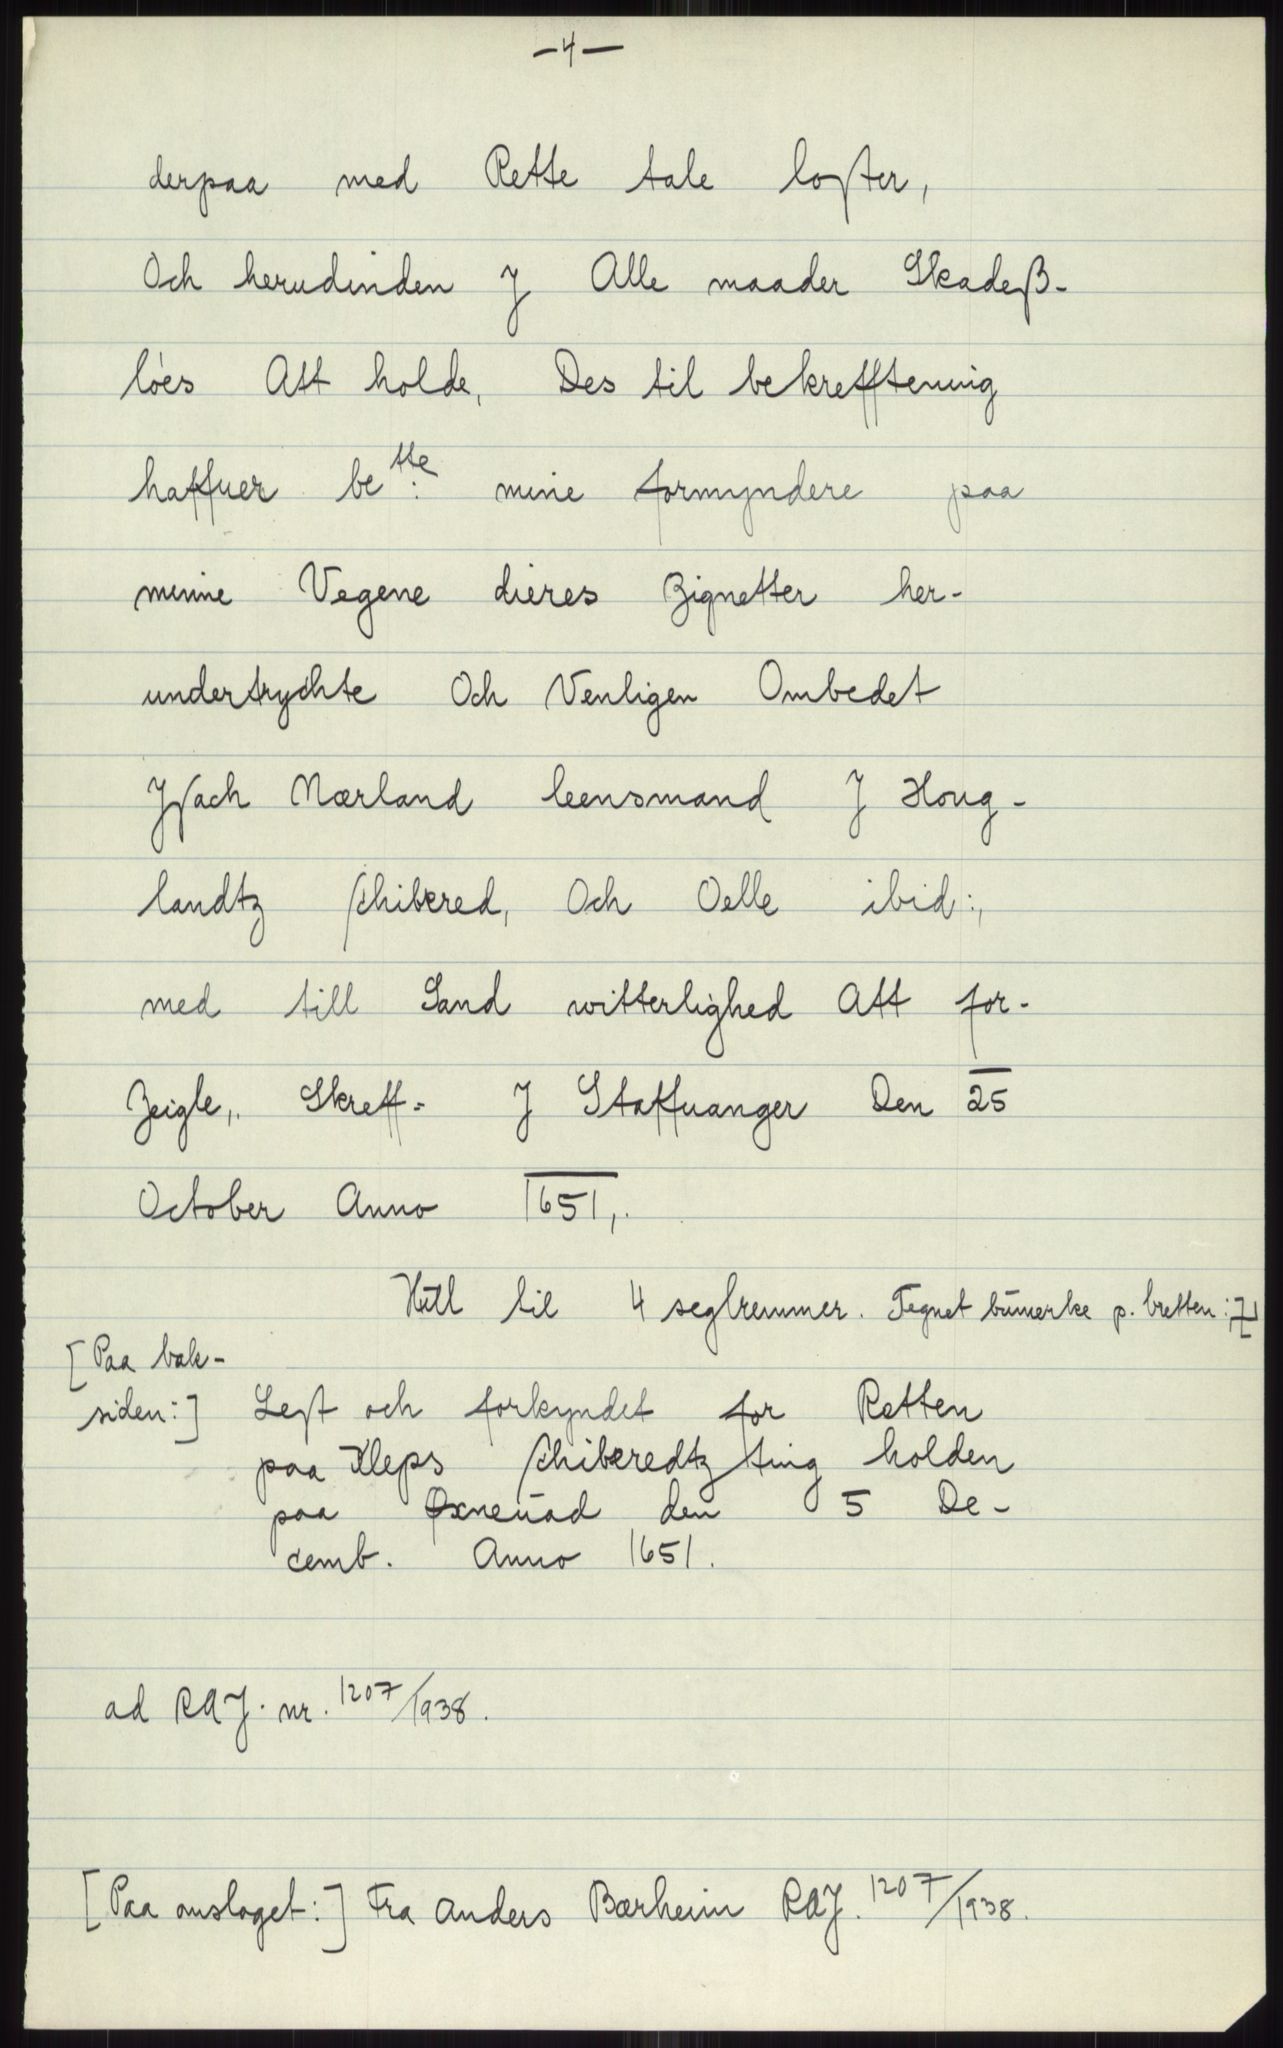 -4-
derpaa med Rette tale loster,
Och herudinden J Alle maader Skadesß-
lóes Att holde, Des til bekrefftening
haffuer be^tte: mine formyndere paa
minne Vegene dieres Zignetter her-
undertrychte Och Venligen Ombedet
Jsach Nærland leensmand J Houg-
landtz schibered, Och Oelle ibid:,
med till Sand witterlighed Att for-
Zeigle,. Skreff= J Staffuanger Den 25
October Anno 1651,.
Hull til 4 seglremmer. Tegnet bumerke p. bretten:
[Paa bak-
siden:] Lest och forkyndet for Retten
paa Kleps schiberedtz ting holden
paa Øxneuad den 5 De-
cemb. Anno 1651.
ad RAJ. nr. 1207/1938.
[Paa omslaget:] Fra Anders Bærheim RAJ. 1207/1938.